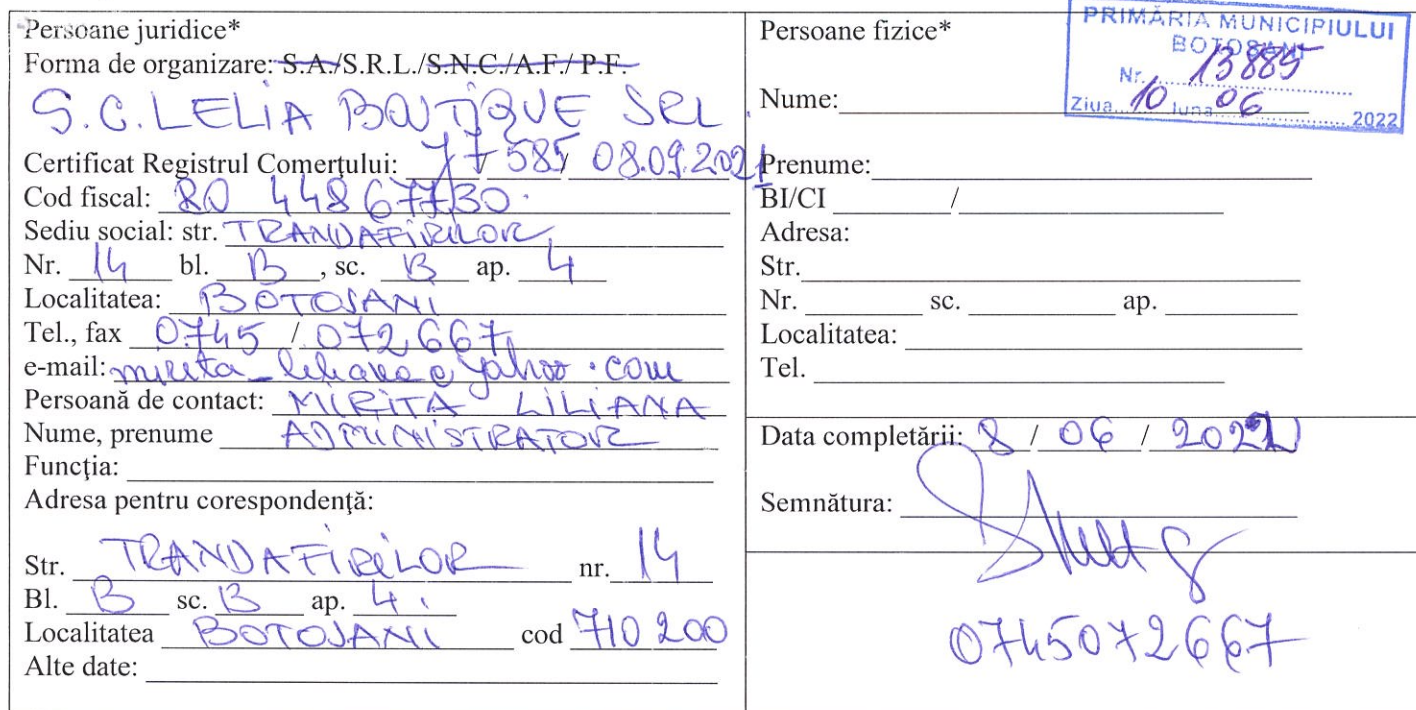 Persoane juridice*
Forma de organizare: S.A./S.R.L./S.N.C./A.F./ P.F.
S.C. LELIA BOUTIQUE SRL
Certificat Registrul Comerţului: J7/585/08.09.2021
Cod fiscal: RO 44867730.
Sediu social: str. TRANDAFIRILOR
Nr. 14 bl. B, sc. B ap. 4
Localitatea: BOTOSANI
Tel., fax 0745 / 072667
e-mail: mirita_liliana@yahoo.com
Persoană de contact: MIRITA LILIANA
Nume, prenume ADMINISTRATOR
Funcţia:
Adresa pentru corespondenţă:
Str. TRANDAFIRILOR nr. 14
Bl. B sc. B ap. 4.
Localitatea BOTOSANI cod 710200
Alte date:
Persoane fizice*
PRIMĂRIA MUNICIPIULUI
BOTOŞANI
Nr. 13885
Ziua 10 luna 06 2022
Nume:
Prenume:
BI/CI /
Adresa:
Str.
Nr. sc. ap.
Localitatea:
Tel.
Data completării: 8 / 06 / 2022
Semnătura:
0745072667